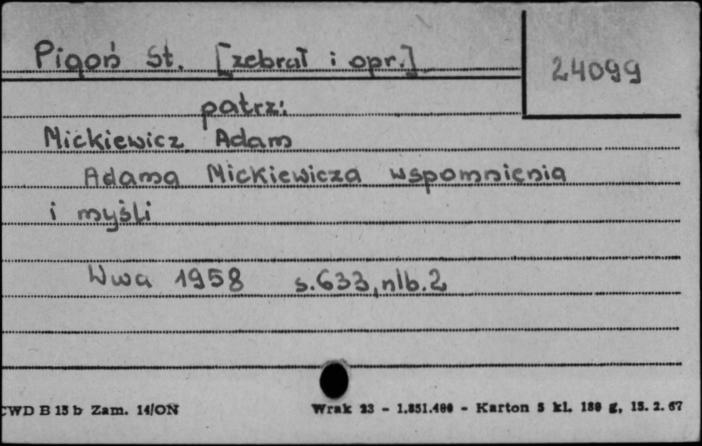 Pigoń St. [zebrał i opr.]
24099
patrz:
Mickiewicz Adam
Adama Mickiewicza wspomnienia
i myśli
Wwa 1958 s.633, nlb.2
CWD B 15 b Zam. 14/ON
Wrak 23 - 1.851.400 - Karton 5 kl. 180 g, 15. 2. 67